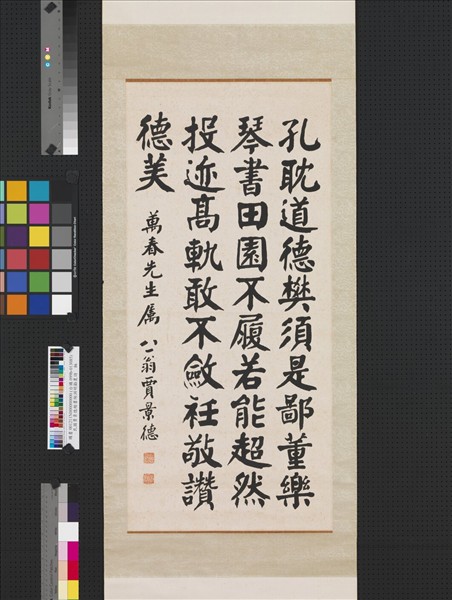 孔耽道德樊須是鄙董樂
琴書田園不履若能超然
投迹高軌敢不斂衽敬讚
德美
萬春先生屬 公翁賈景德